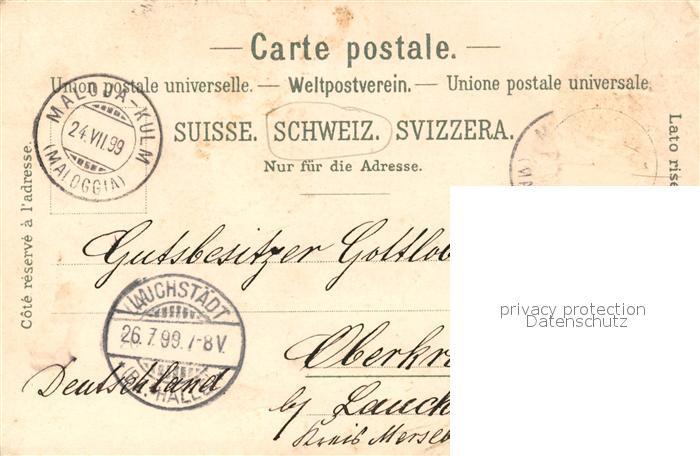 Carte postale.
Union postale universelle. — Weltpostverein. — Unione postale universale.
SUISSE. SCHWEIZ. SVIZZERA.
Nur für die Adresse.
Côté réservé à l'adresse.
Lato rise
MALOJA-KULM
24.VII.99
(MALOGGIA)
Gutsbesitzer Gottlob
LAUCHSTÄDT
26.7.99.7-8V.
(BZ. HALLE)
Oberkr
Deutschland.
by Lauch
Kreis Merseb
privacy protection
Datenschutz